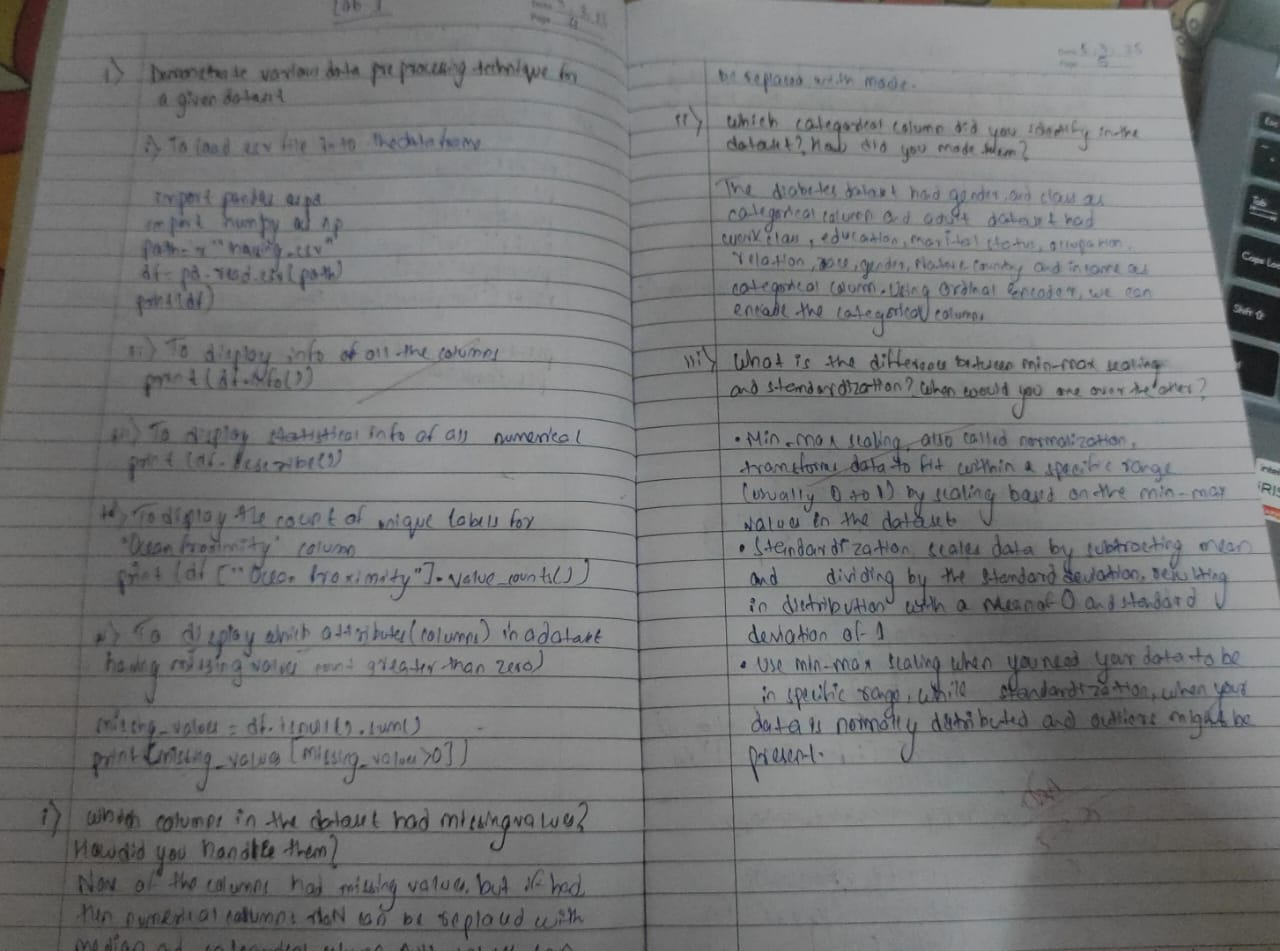 Lab 1
1) Demonstrate various data preprocessing technique for
a given dataset
i) To load csv file into the dataframe
import pandas as pd
import numpy as np
path = "housing.csv"
df = pd.read_csv(path)
print(df)
ii) To display info of all the columns
print(df.info())
iii) To display statistical info of all numerical
print(df.describe())
iv) To display the count of unique labels for
"Ocean Proximity" column
print(df["Ocean Proximity"].value_counts())
v) To display which attributes (columns) in a dataset
having missing values count greater than zero)
missing_values = df.isnull().sum()
print(missing_values[missing_values>0])
i) Which columns in the dataset had missing values?
How did you handle them?
Non of the columns had missing value, but if had,
then numerical columns NaN can be replaced with
median
be replaced with mode.
ii) Which categorical column did you identify in the
dataset? How did you them?
The diabetes dataset had gender, and class as
categorical column and adult dataset had
workclass, education, marital status, occupation,
relation, race, gender, Native country and income as
categorical column. Using Ordinal Encoder, we can
encode the categorical columns
iii) What is the difference between min-max scaling
and standardization? When would you one over the other?
• Min-max scaling, also called normalization,
transforms data to fit within a specific range
(usually 0 to 1) by scaling based on the min-max
values in the dataset
• Standardization scales data by subtracting mean
and dividing by the standard deviation, resulting
in distribution with a mean of 0 and standard
deviation of 1
• Use min-max scaling when you need your data to be
in specific range, while standardization, when your
data is normally distributed and outliers might be
present.
Tab
Caps Loc
Shift